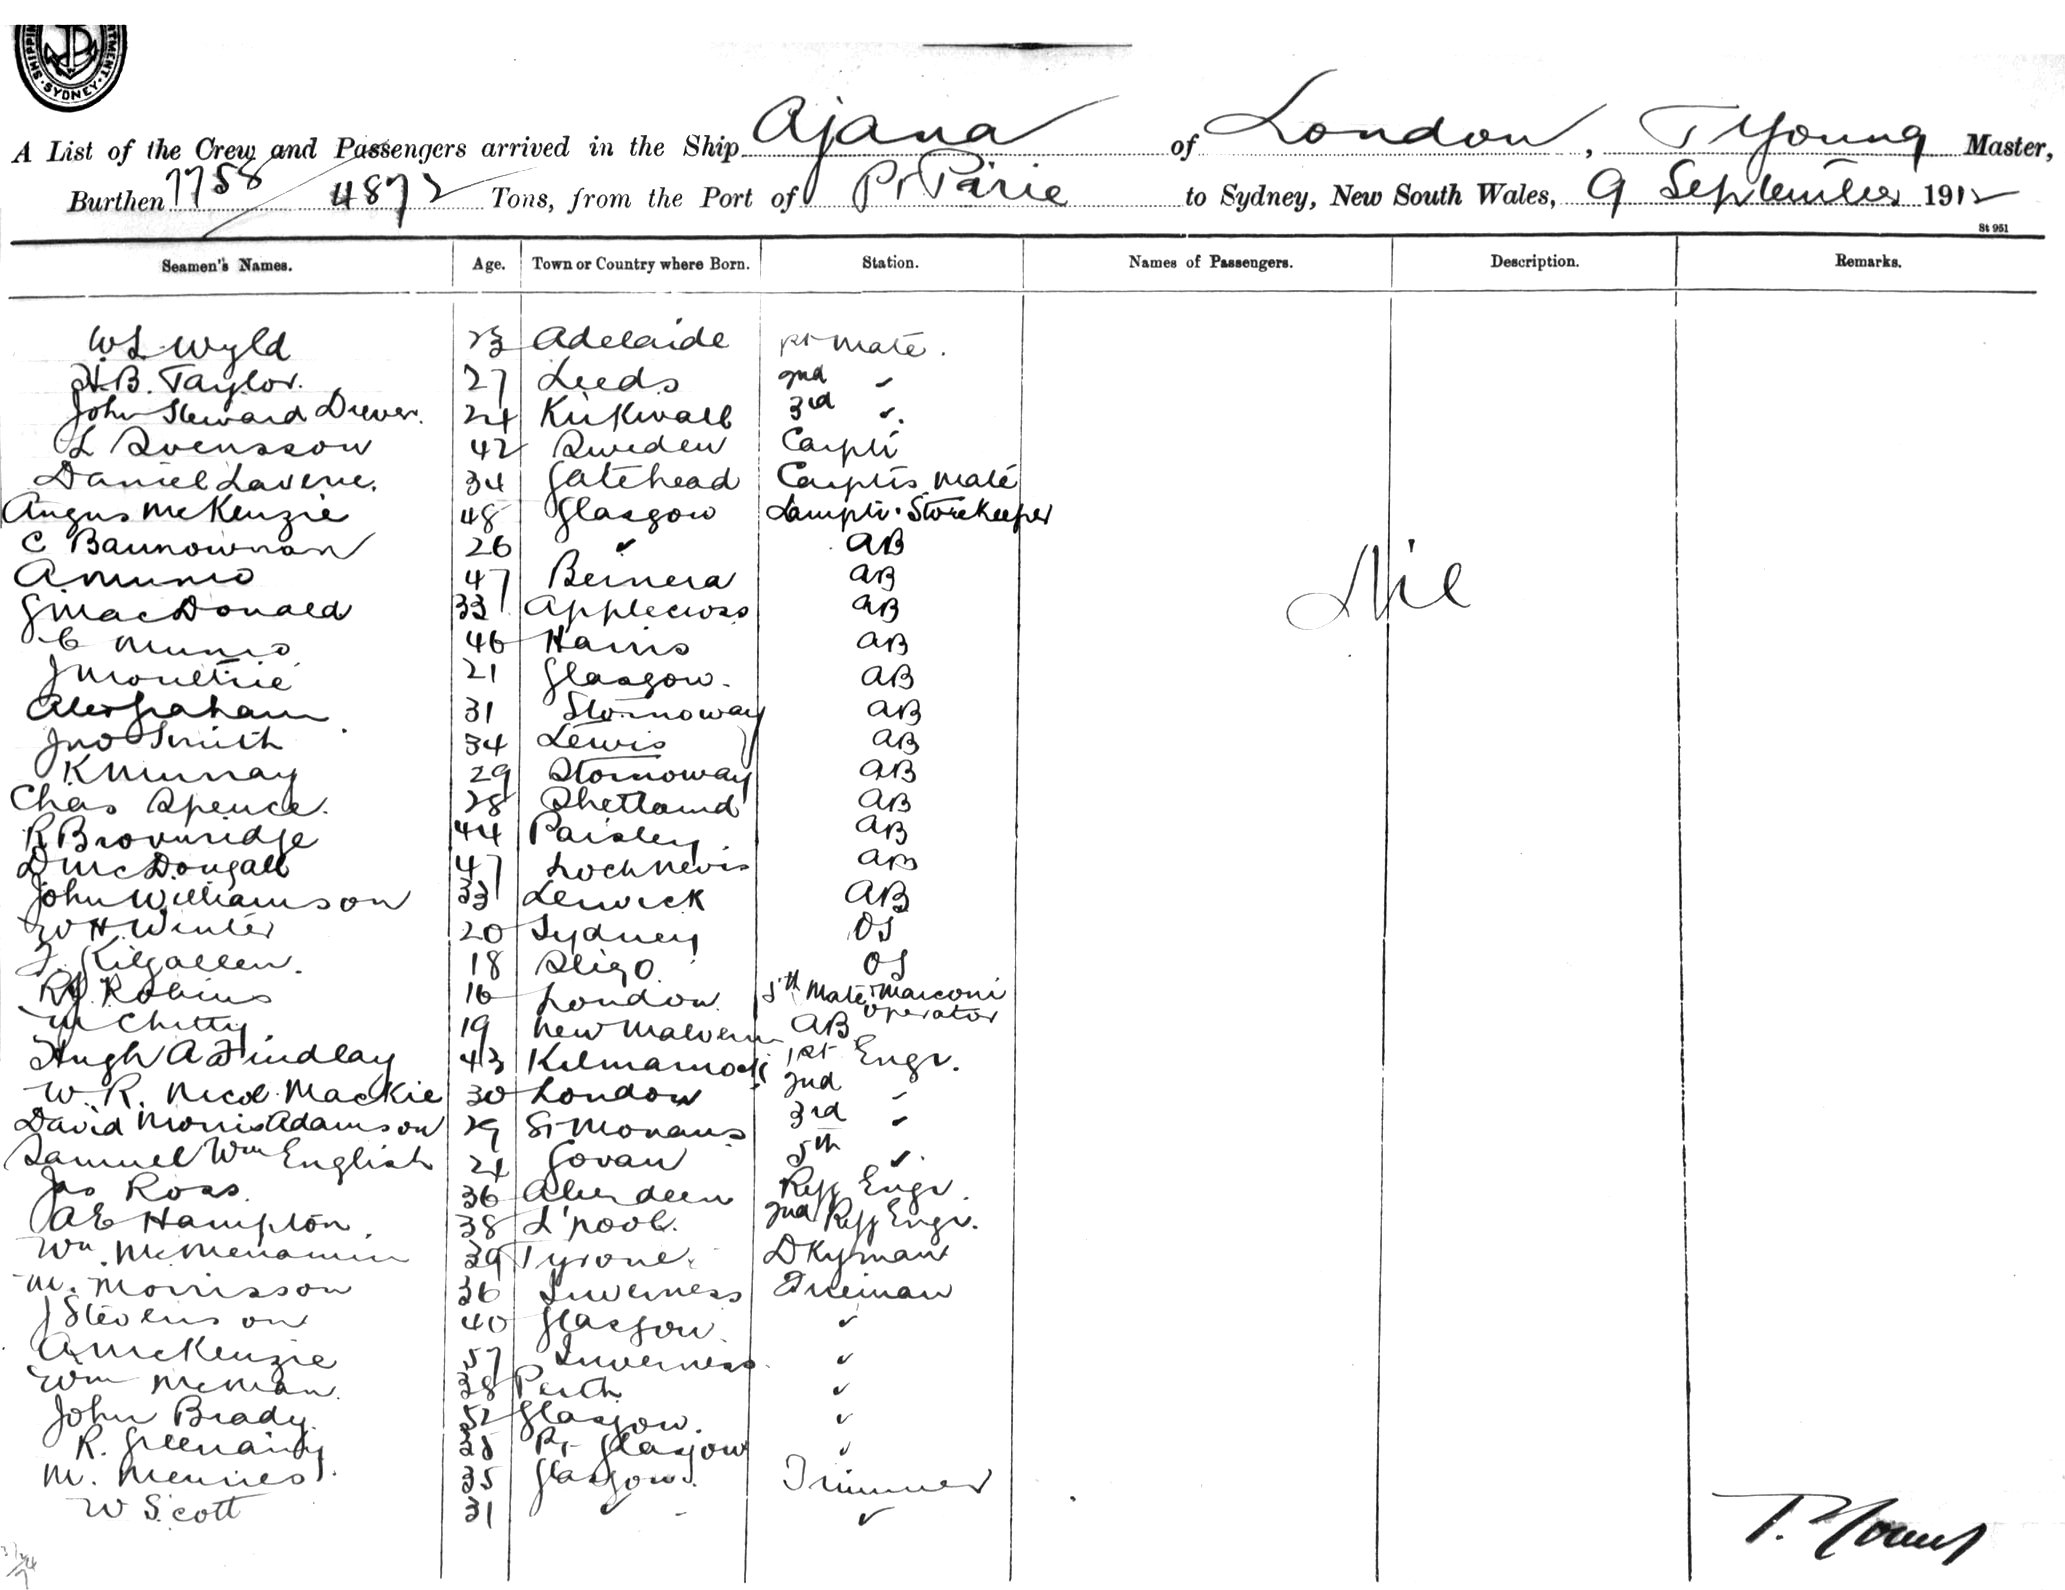 SYDNEY
A List of the Crew and Passengers arrived in the Ship Ajana of London, T Young Master,
Burthen 7758 / 4872 Tons, from the Port of Pt Pirie to Sydney, New South Wales, 9 September 1912
St 951
Seamen's Names. Age. Town or Country where Born. Station. Names of Passengers. Description. Remarks.
W L Wyld 23 Adelaide 1st Mate.
H.B. Taylor. 27 Leeds 2nd "
John Steward Drever. 24 Kirkwall 3rd "
L Svensson 42 Sweden Carptr
Daniel Laverie. 34 Gatehead Carptrs Mate
Angus McKenzie 48 Glasgow Lamptr. Storekeeper
C 26 " AB
A Munro 47 Bernera AB
J MacDonald 33 Applecross AB
C Munro 46 Harris AB
Nil
J Moultrie 21 Glasgow. AB
Alex Graham 31 Stornoway AB
Jno Smith 34 Lewis AB
K Murray 29 Stornoway AB
Chas Spence. 28 Shetland AB
R Brownridge 44 Paisley AB
D McDougall 47 Loch Nevis AB
John Williamson 33 Lerwick AB
W H Winter 20 Sydney OS
F. Kilgallen. 18 Sligo. OS
R J. Robins 16 London. 5th Mate & Marconi operator
W Chitty. 19 New Malvern AB
Hugh A Findlay 43 Kilmarnock 1st Engr.
W. R. Nicol Mackie 30 London 2nd "
David Morris Adamson 29 St Monans 3rd "
Samuel Wm English 24 Govan 5th "
Jas Ross. 36 Aberdeen Refg Engr.
A E Hampton. 38 L'pool. 2nd Refg Engr.
Wm. McMenamin 39 Tyrone. Dkyman
M. Morrisson 36 Inverness Fireman
J Stevenson 40 Glasgow. "
A McKenzie 57 Inverness. "
Wm McMian. 38 Perth "
John Brady. 52 Glasgow. "
R. Pt Glasgow "
M. 35 Glasgow. Trimmer
W Scott 31 " "
T. Young